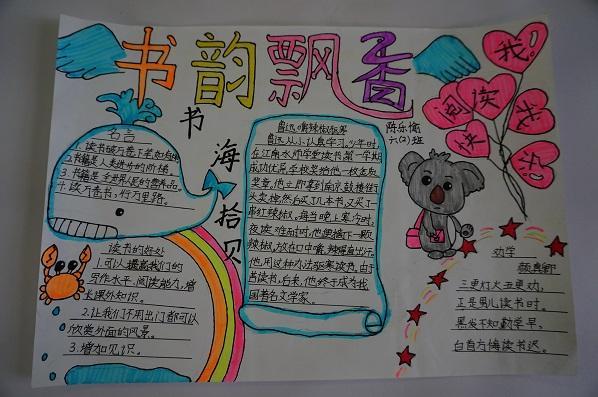 书韵飘香
书海拾贝
名言
1.读书破万卷下笔如有神
2.书籍是人类进步的阶梯.
3.书籍是全世界人民的营养品.
4.读万卷书,行万里路.
读书的好处
1.可以提高我们的
写作水平、阅读能力,增
长课外知识。
2.让我们不用出门都可以
欣赏外面的风景。
3.增加见识.
鲁迅嚼辣椒驱寒
鲁迅从小认真学习。少年时,
在江南水师学堂读书,第一学期
成绩优异,学校奖给他一枚金质
奖章。他立即拿到南京鼓楼街
头卖掉,然后买了几本书,又买了一
串红辣椒。每当晚上寒冷时,
夜读难耐时,他便摘下一颗
辣椒,放在口中嚼
他用这种办法驱寒读书。由于
苦读书,后来,他终于成为我
国著名文学家。
陈乐
六(2)班
我阅读
我快乐
劝学
颜真卿
三更灯火五更鸡,
正是男儿读书时。
黑发不知勤学早,
白首方悔读书迟。